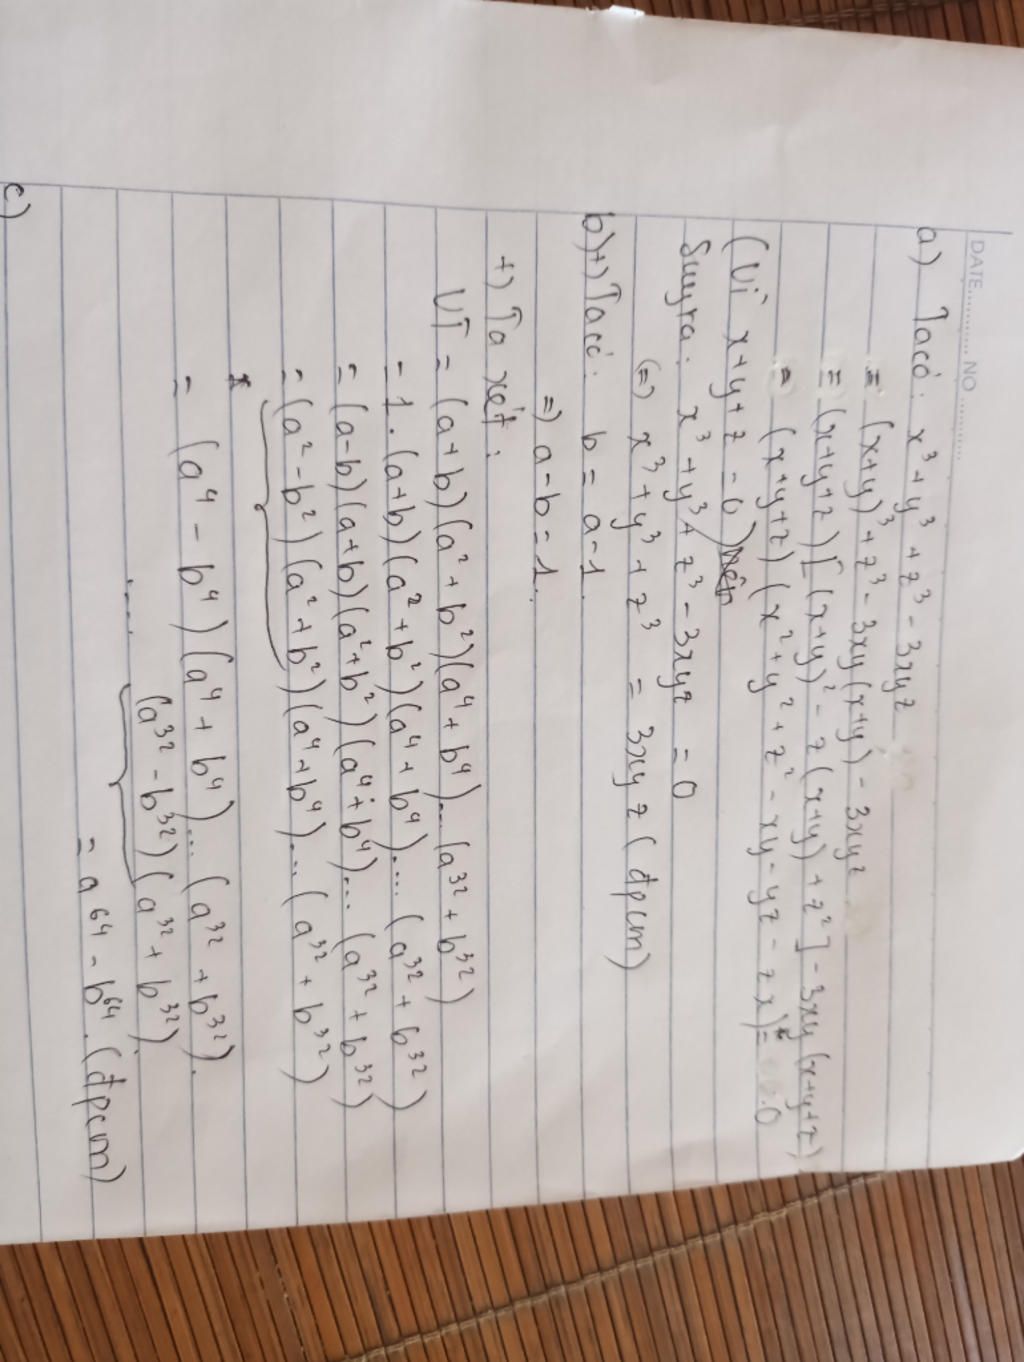 DATE............ NO ............
a) Ta có: x³ + y³ + z³ - 3xyz
= (x+y)³ + z³ - 3xy(x+y) - 3xyz
= (x+y+z)[(x+y)² - z(x+y) + z²] - 3xy(x+y+z)
= (x+y+z)(x² + y² + z² - xy - yz - zx) = 0
(Vì x+y+z = 0) nên
Suy ra: x³ + y³ + z³ - 3xyz = 0
(=) x³ + y³ + z³ = 3xyz (đpcm)
b) +) Ta có: b = a - 1
=) a - b = 1.
+) Ta xét:
VT = (a+b)(a² + b²)(a⁴ + b⁴)...(a³² + b³²)
= 1.(a+b)(a² + b²)(a⁴ + b⁴)....(a³² + b³²)
= (a-b)(a+b)(a² + b²)(a⁴ + b⁴)...(a³² + b³²)
= (a² - b²)(a² + b²)(a⁴ + b⁴)...(a³² + b³²)
= (a⁴ - b⁴)(a⁴ + b⁴)...(a³² + b³²).
..... (a³² - b³²)(a³² + b³²).
= a⁶⁴ - b⁶⁴. (đpcm)
c)